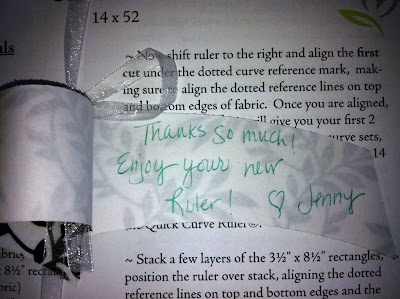 als
14 x 52
~ Now shift ruler to the right and align the first
cut under the dotted curve reference mark, mak-
ing sure to align the dotted reference lines on top
and bottom edges of fabric. Once you are aligned,
will give you your first 2
curve sets,
14
Thanks so much!
Enjoy your new
Ruler! ♡ Jenny
Quick Curve Ruler©.
~ Stack a few layers of the 3½" x 8½" rectangles,
position the ruler over stack, aligning the dotted
reference lines on top and bottom edges and the
abric,
8½" rectan
bric)